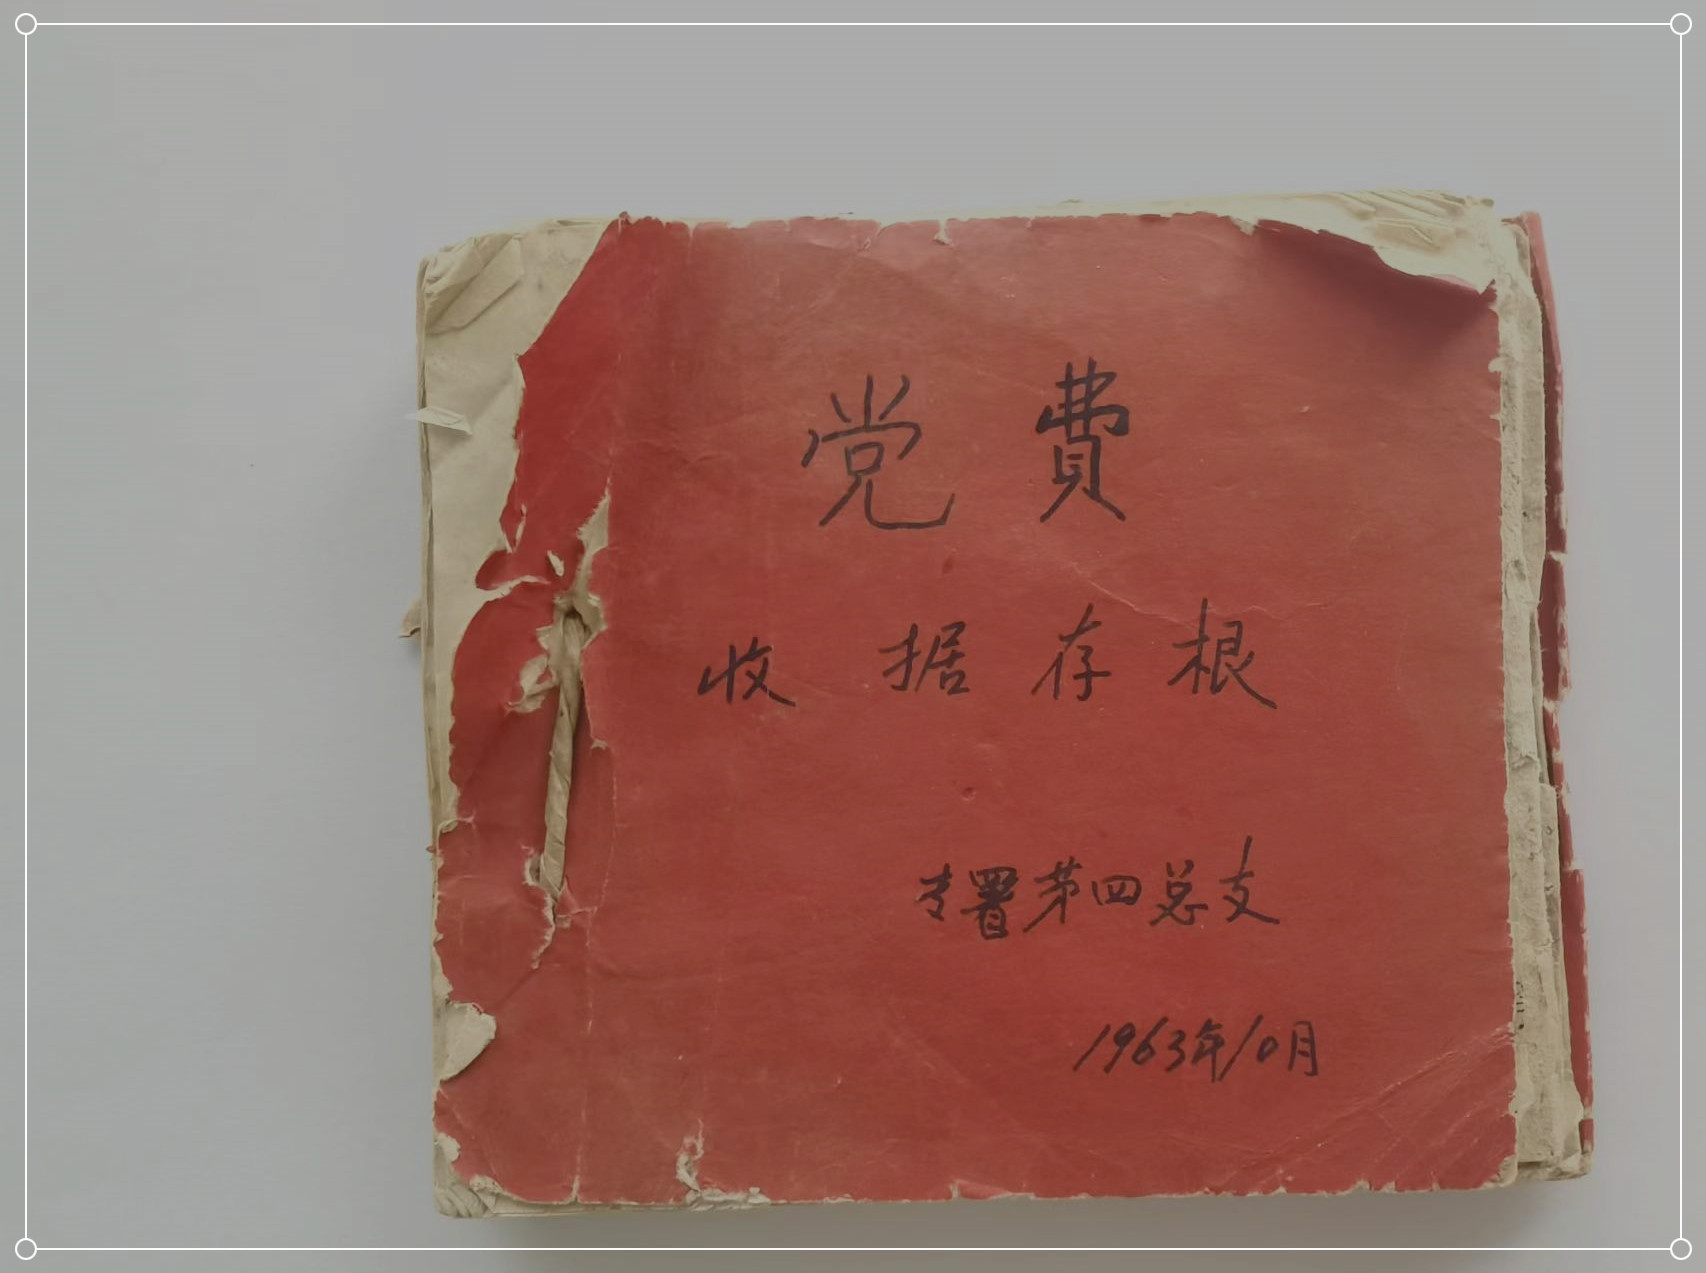 党費
收据存根
专署第四总支
1963年10月